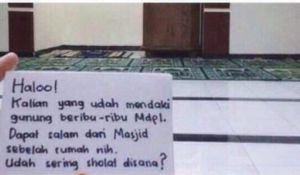 Haloo!
Kalian yang udah mendaki
gunung beribu-ribu Mdpl.
Dapat salam dari Masjid
sebelah rumah nih.
Udah sering sholat disana?